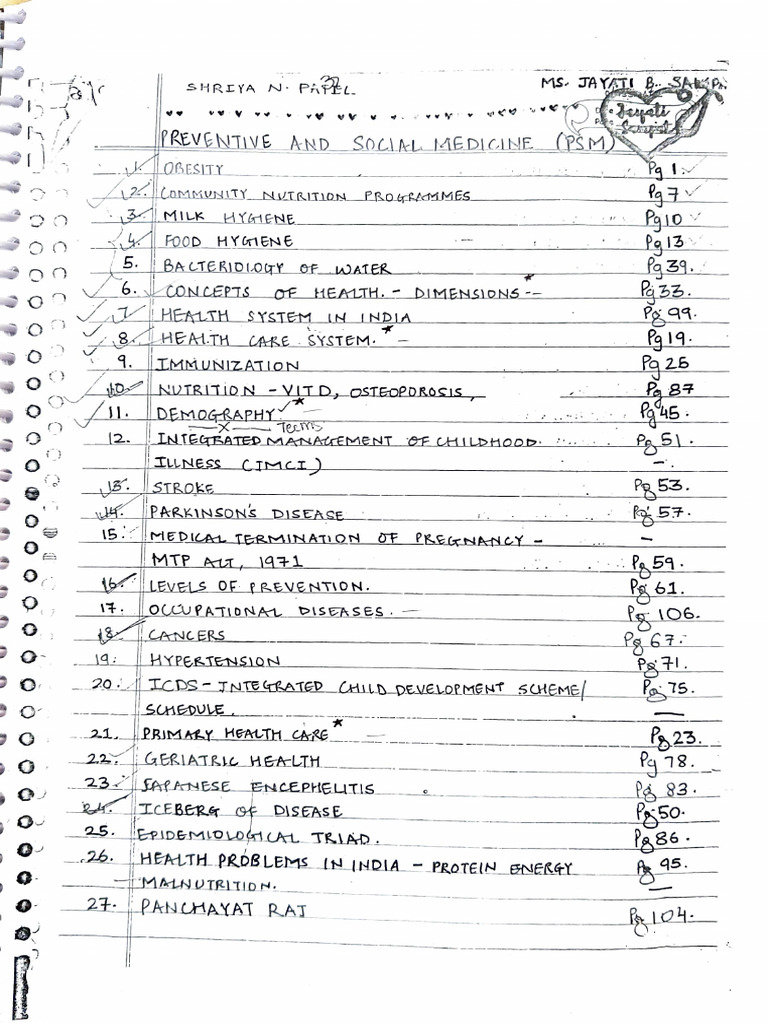 SHRIYA N. PATEL
MS. JAYATI B.
Jayati
PREVENTIVE AND SOCIAL MEDICINE (PSM)
1. OBESITY Pg 1
2. COMMUNITY NUTRITION PROGRAMMES Pg 7
3. MILK HYGIENE Pg 10
4. FOOD HYGIENE – Pg 13
5. BACTERIOLOGY OF WATER Pg 39.
6. CONCEPTS OF HEALTH. - DIMENSIONS * - Pg 33.
7. HEALTH SYSTEM IN INDIA Pg 99.
8. HEALTH CARE SYSTEM. * - Pg 19.
9. IMMUNIZATION Pg 25
10. NUTRITION - VIT D, OSTEOPOROSIS, Pg 87
11. DEMOGRAPHY * – Pg 45.
X Terms
12. INTEGRATED MANAGEMENT OF CHILDHOOD. Pg 51.
ILLNESS (IMCI) –.
13. STROKE Pg 53.
14. PARKINSON'S DISEASE Pg 57.
15. MEDICAL TERMINATION OF PREGNANCY - –
MTP ACT, 1971 Pg 59.
16. LEVELS OF PREVENTION. Pg 61.
17. OCCUPATIONAL DISEASES. – Pg 106.
18. CANCERS Pg 67.
19. HYPERTENSION Pg 71.
20. ICDS - INTEGRATED CHILD DEVELOPMENT SCHEME/ Pg 75.
SCHEDULE. —
21. PRIMARY HEALTH CARE * – Pg 23.
22. GERIATRIC HEALTH Pg 78.
23. JAPANESE ENCEPHELITIS Pg 83.
24. ICEBERG OF DISEASE Pg 50.
25. EPIDEMIOLOGICAL TRIAD. Pg 86.
26. HEALTH PROBLEMS IN INDIA - PROTEIN ENERGY Pg 95.
MALNUTRITION. —
27. PANCHAYAT RAJ Pg 104.